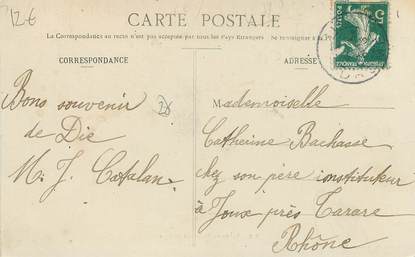 12-6
CARTE POSTALE
La Correspondance au recto n'est pas acceptée par tous les Pays Etrangers Se renseigner à la
CORRESPONDANCE
ADRESSE
5
28
Bons souvenir
de Die
M. J. Catalan.
Mademoiselle
Catherine Bachasse
chez son père instituteur
à Joux près Tarare
Rhône